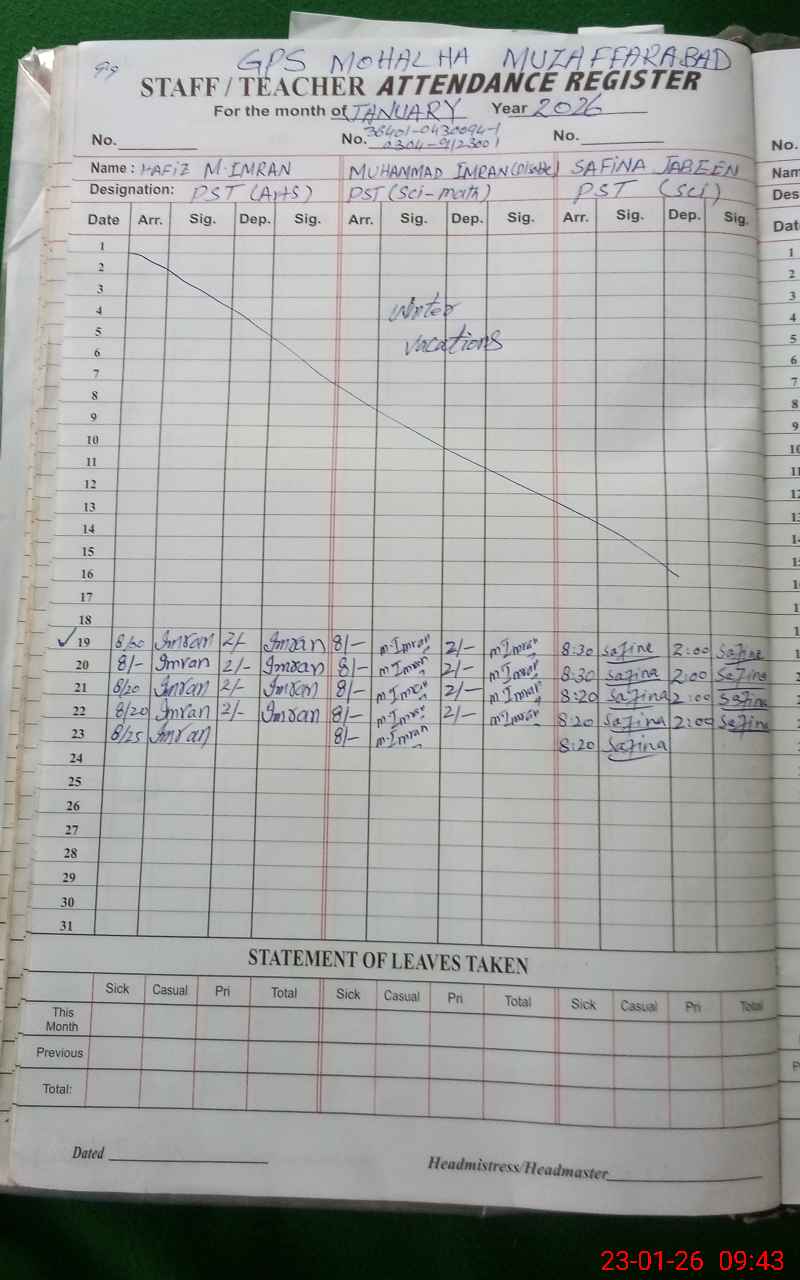 99
GPS MOHALHA MUZAFFARABAD
STAFF / TEACHER ATTENDANCE REGISTER
For the month of JANUARY Year 2026
No. No. 38401-0430094-1 No. No.
0304-9123001
Name : HAFIZ M·IMRAN MUHAMMAD IMRAN SAFINA JABEEN Nam
Designation: PST (Arts) PST (Sci-math) PST (Sci) Des
Date Arr. Sig. Dep. Sig. Arr. Sig. Dep. Sig. Arr. Sig. Dep. Sig. Dat
1 1
2 2
3 3
4 winter 4
5 vacations 5
6 6
7 7
8 8
9 9
10 10
11 11
12 12
13
14
15
16
17
18
✓ 19 8/30 Imran 2/- Imran 8/- m·Imran 2/- m·Imran 8:30 Safina 2:00 Safina
20 8/- Imran 2/- Imran 8/- m·Imran 2/- m·Imran 8:30 Safina 2:00 Safina
21 8/20 Imran 2/- Imran 8/- m·Imran 2/- m·Imran 8:20 Safina 2:00 Safina
22 8/20 Imran 2/- Imran 8/- m·Imran 2/- m·Imran 8:20 Safina 2:00 Safina
23 8/25 Imran 8/- m·Imran 8:20 Safina
24
25
26
27
28
29
30
31
STATEMENT OF LEAVES TAKEN
Sick Casual Pri Total Sick Casual Pri Total Sick Casual Pri Total
This
Month
Previous
Total:
Dated Headmistress/Headmaster
23-01-26 09:43